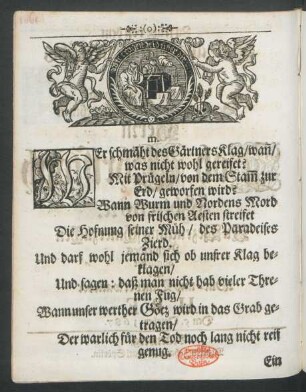 :(o):
m.
WEr schmäht des Gärtners Klag/wañ/
was nicht wohl gereifet?
Mit Prügeln/von dem Stam̃ zur
Erd/geworfen wird?
Wann Wurm und Nordens Mord
von frischen Aesten streifet
Die Hofnung seiner Müh/des Paradeises
Zierd.
Und darf wohl jemand sich ob unsrer Klag be-
klagen/
Und sagen: daß man nicht hab vieler Thre-
nen Fug/
Wann unser werther Götz wird in das Grab ge-
tragen/
Der warlich für den Tod noch lang nicht reif
genug.
Ein